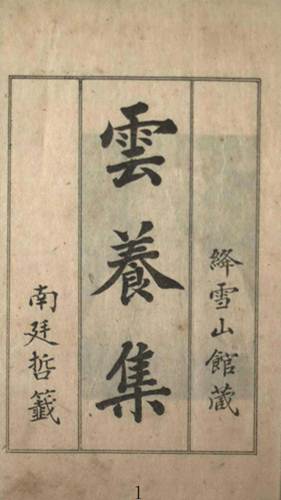 絳雪山館蔵
雲養集
南廷哲籤
1